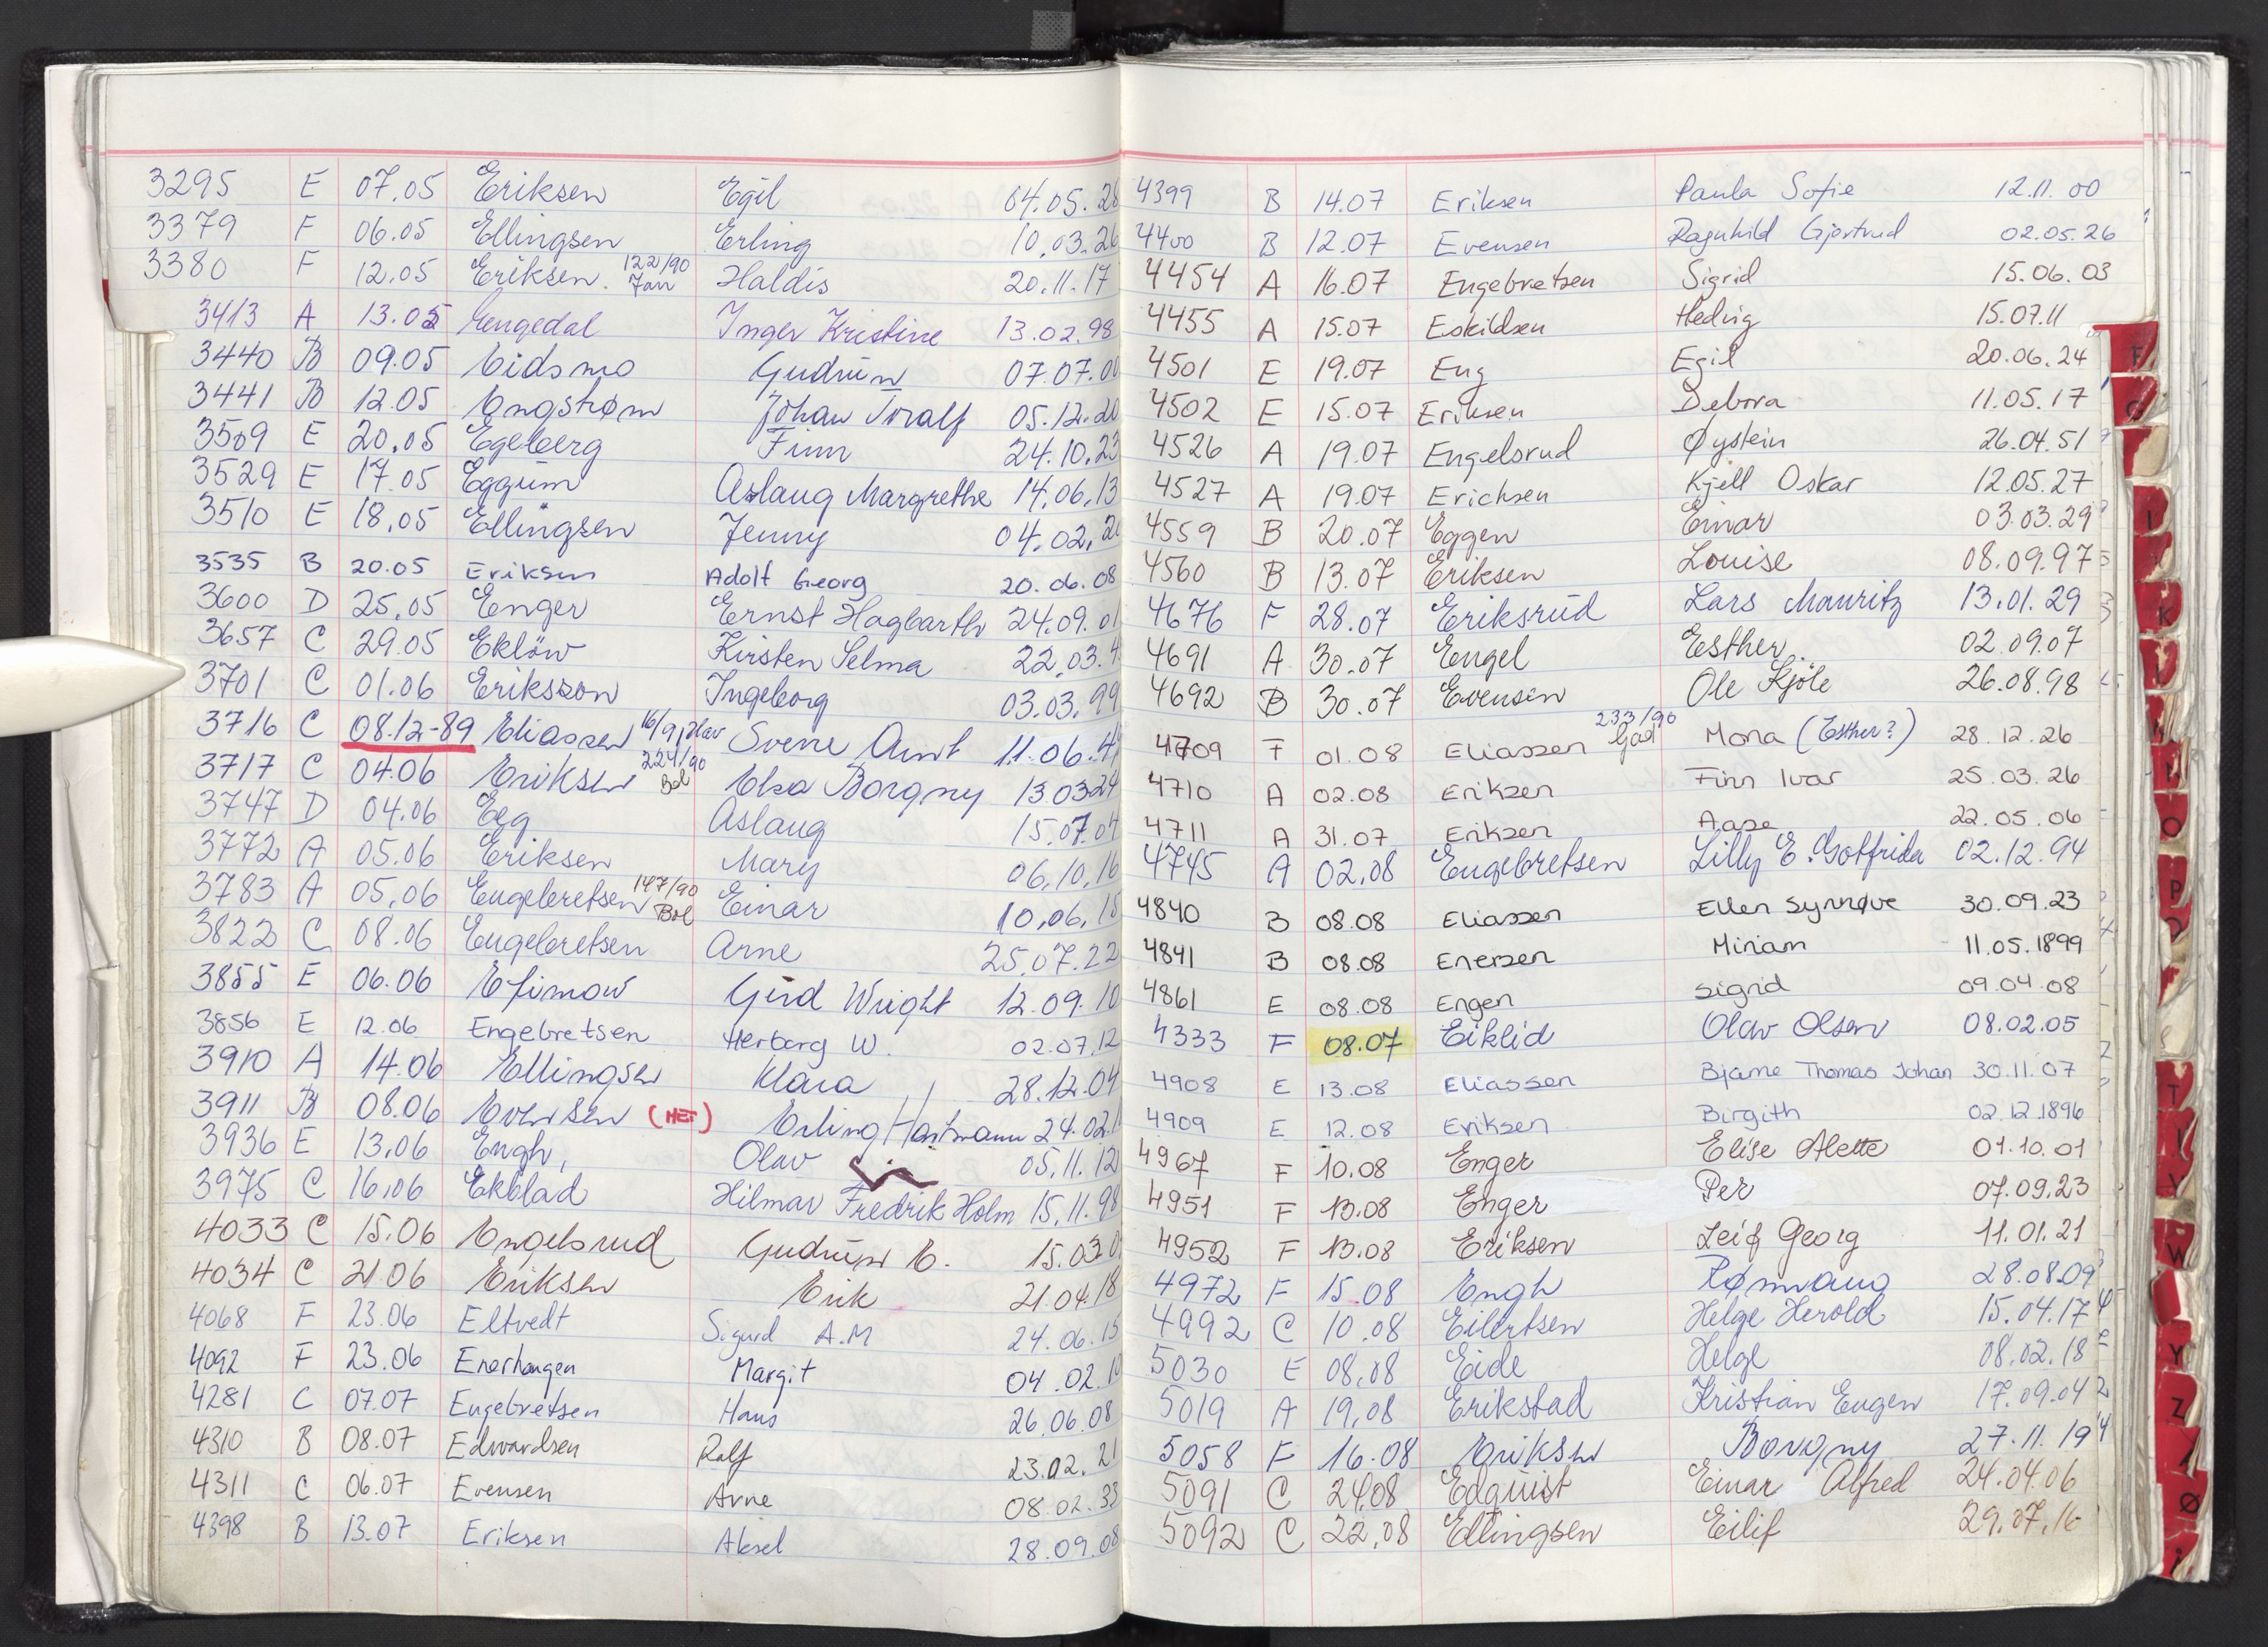 3295 E 07.05 Eriksen Egil 04.05.28
3379 F 06.05 Ellingsen Erling 10.03.26
3380 F 12.05 Eriksen. 122/90 Jan Haldis 20.11.17
3413 A 13.05 Engedal Inger Kristine 13.02.98
3440 B 09.05 Eidsmo Gudrun 07.07.00
3441 B 12.05 Engstrøm Johan Toralf 05.12.20
3509 E 20.05 Egeberg Finn 24.10.23
3529 E 17.05 Eggum Aslaug Margrethe 14.06.13
3510 E 18.05 Ellingsen Jenny 04.02.20
3535 B 20.05 Eriksen Adolf Georg 20.06.08
3600 D 25.05 Enger Ernst Hagbarth 24.09.01
3657 C 29.05 Eklöw Kirsten Selma 22.03.4
3701 C 01.06 Eriksson Ingeborg 03.03.99
3716 C 08.12-89 Eliassen 16/91 Hav Svene Arnt 11.06.4
3717 C 04.06 Eriksen 224/90 Bol Elsa Borgny 13.03.24
3747 D 04.06 Egg Aslaug 15.07.04
3772 A 05.06 Eriksen Mary 06.10.16
3783 A 05.06 Engebretsen 147/90 Bol Einar 10.06.15
3822 C 08.06 Engebretsen Arne 25.07.22
3855 E 06.06 Efimow Gerd Wright 12.09.10
3856 E 12.06 Engebretsen Herborg W. 02.07.12
3910 A 14.06 Ellingsen Klara 28.12.04
3911 B 08.06 Evensen (MET) Erling Hartmann 24.02.1
3936 E 13.06 Engh, Olav 05.11.12
3975 C 16.06 Ekblad Hilmar Fredrik Holm 15.11.98
4033 C 15.06 Engelsrud Gudrun E. 15.03.0
4034 C 21.06 Eriksen Erik 21.04.18
4068 F 23.06 Eltvedt Sigurd A.M 24.06.15
4092 F 23.06 Enerhaugen Margit 04.02.10
4281 C 07.07 Engebretsen Hans 26.06.08
4310 B 08.07 Edwardsen Rolf 23.02.21
4311 C 06.07 Evensen Arne 08.02.33
4398 B 13.07 Eriksen Aksel 28.09.08
4399 B 14.07 Eriksen Paula Sofie 12.11.00
4400 B 12.07 Evensen Ragnhild Gjertrud 02.05.26
4454 A 16.07 Engebretsen Sigrid 15.06.03
4455 A 15.07 Eskildsen Hedvig 15.07.11
4501 E 19.07 Eng Egil 20.06.24
4502 E 15.07 Eriksen Debora 11.05.17
4526 A 19.07 Engelsrud Øystein 26.04.51
4527 A 19.07 Erichsen Kjell Oskar 12.05.27
4559 B 20.07 Eggen Einar 03.03.29
4560 B 13.07 Eriksen Louise 08.09.97
4676 F 28.07 Eriksrud Lars Mauritz 13.01.29
4691 A 30.07 Engel Esther. 02.09.07
4692 B 30.07 Evensen Ole Kjöle 26.08.98
4709 F 01.08 Eliassen 233/90 Gad Mona (Esther?) 28.12.26
4710 A 02.08 Eriksen Finn Ivar 25.03.26
4711 A 31.07 Eriksen Aase 22.05.06
4745 A 02.08 Engebretsen Lilly E. Gotfrida 02.12.94
4840 B 08.08 Eliassen Ellen Synnøve 30.09.23
4841 B 08.08 Enersen Miriam 11.05.1899
4861 E 08.08 Engen Sigrid 09.04.08
4333 F 08.07 Eiklid Olav Olsen 08.02.05
4908 E 13.08 Eliassen Bjarne Thomas Johan 30.11.07
4909 E 12.08 Eriksen Birgith 02.12.1896
4967 F 10.08 Enger Elise Alette 01.10.01
4951 F 13.08 Enger Per 07.09.23
4952 F 13.08 Eriksen Leif Georg 11.01.21
4972 F 15.08 Engh Rømaug 28.08.09
4992 C 10.08 Eilertsen Helge Herold 15.04.17
5030 E 08.08 Eide Helge 08.02.18
5019 A 19.08 Erikstad Kristian Eugen 17.09.04
5058 F 16.08 Eriksen Borgny 27.11.19
5091 C 24.08 Edquist Einar Alfred 24.04.06
5092 C 22.08 Ellingsen Eilif 29.07.16
F
G
I
K
O
P
T
V
W
Y
Z
Ø